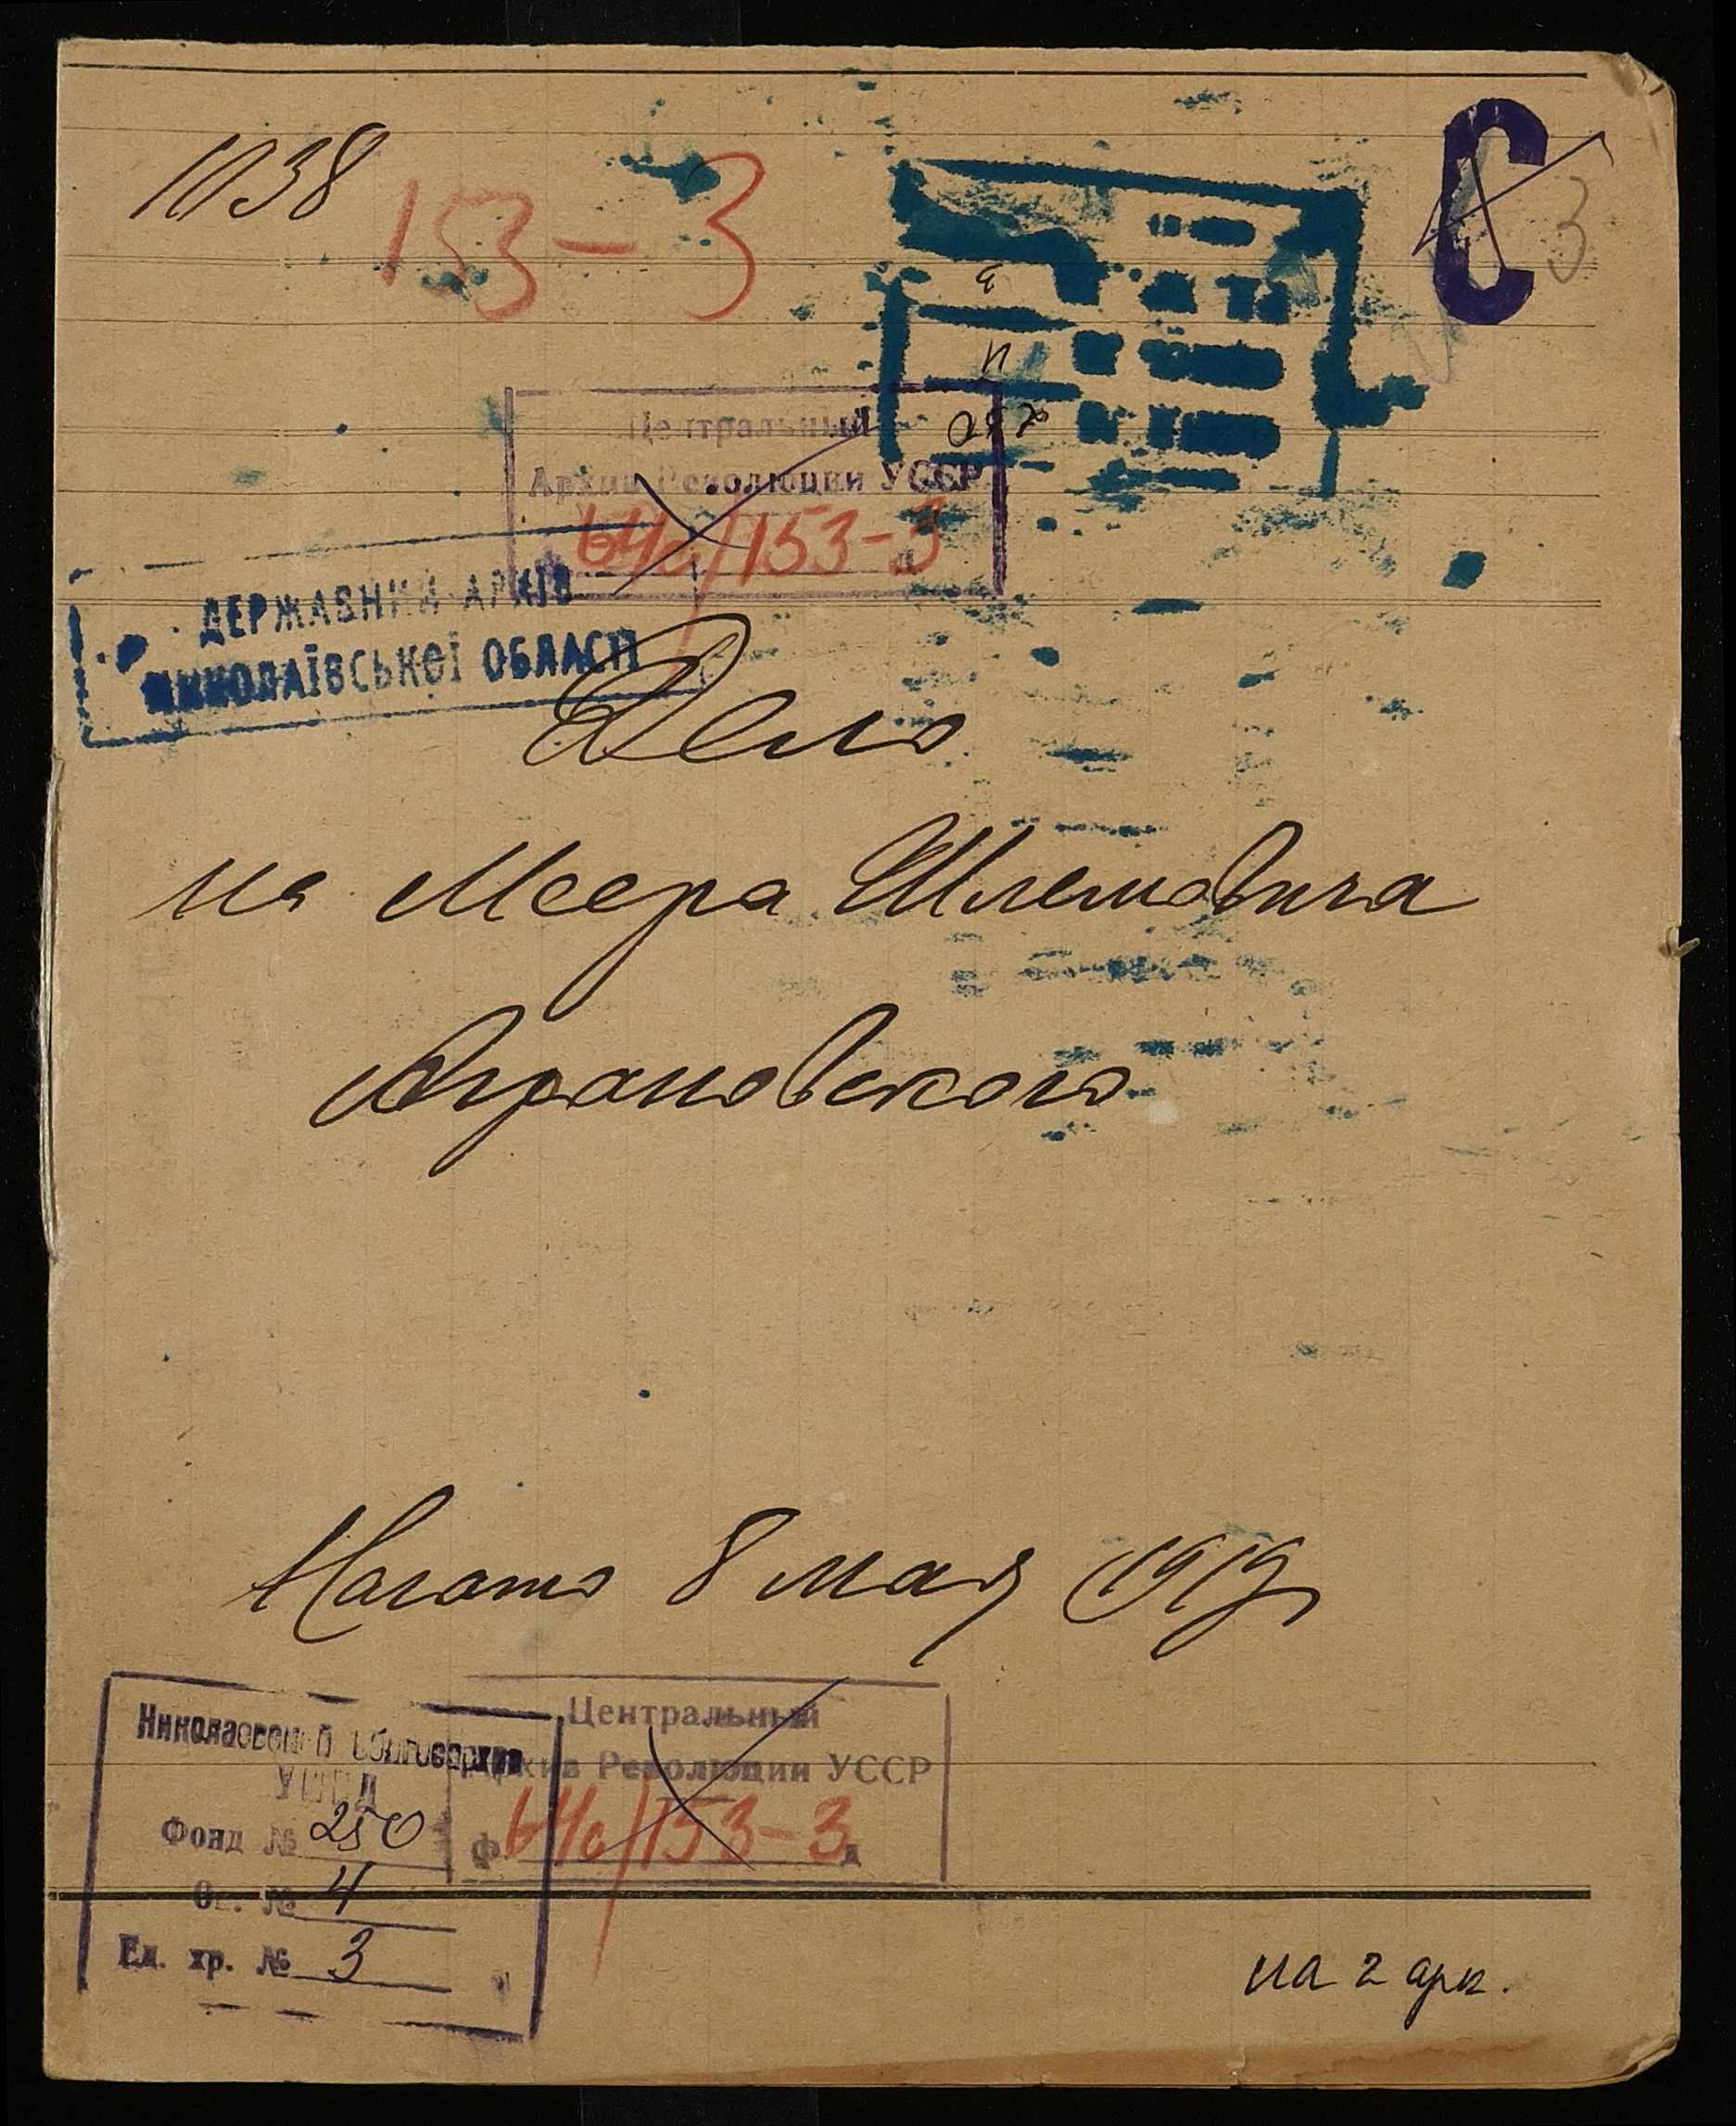 1038
153-3
С
3
Центральный
Архив Революции УССР
64с/153-3
ДЕРЖАВНИЙ АРХІВ
МИКОЛАЇВСЬКОЇ ОБЛАСТІ
Дело
на Меера Шлемовича
Аграновского
Начато 8 мая 1919 г.
Николаевский облгосархив
Фонд № 250
Оп. № 4
Ед. хр. № 3
Центральный
Архив Революции УССР
ф. 64с/153-3 д
на 2 арк.